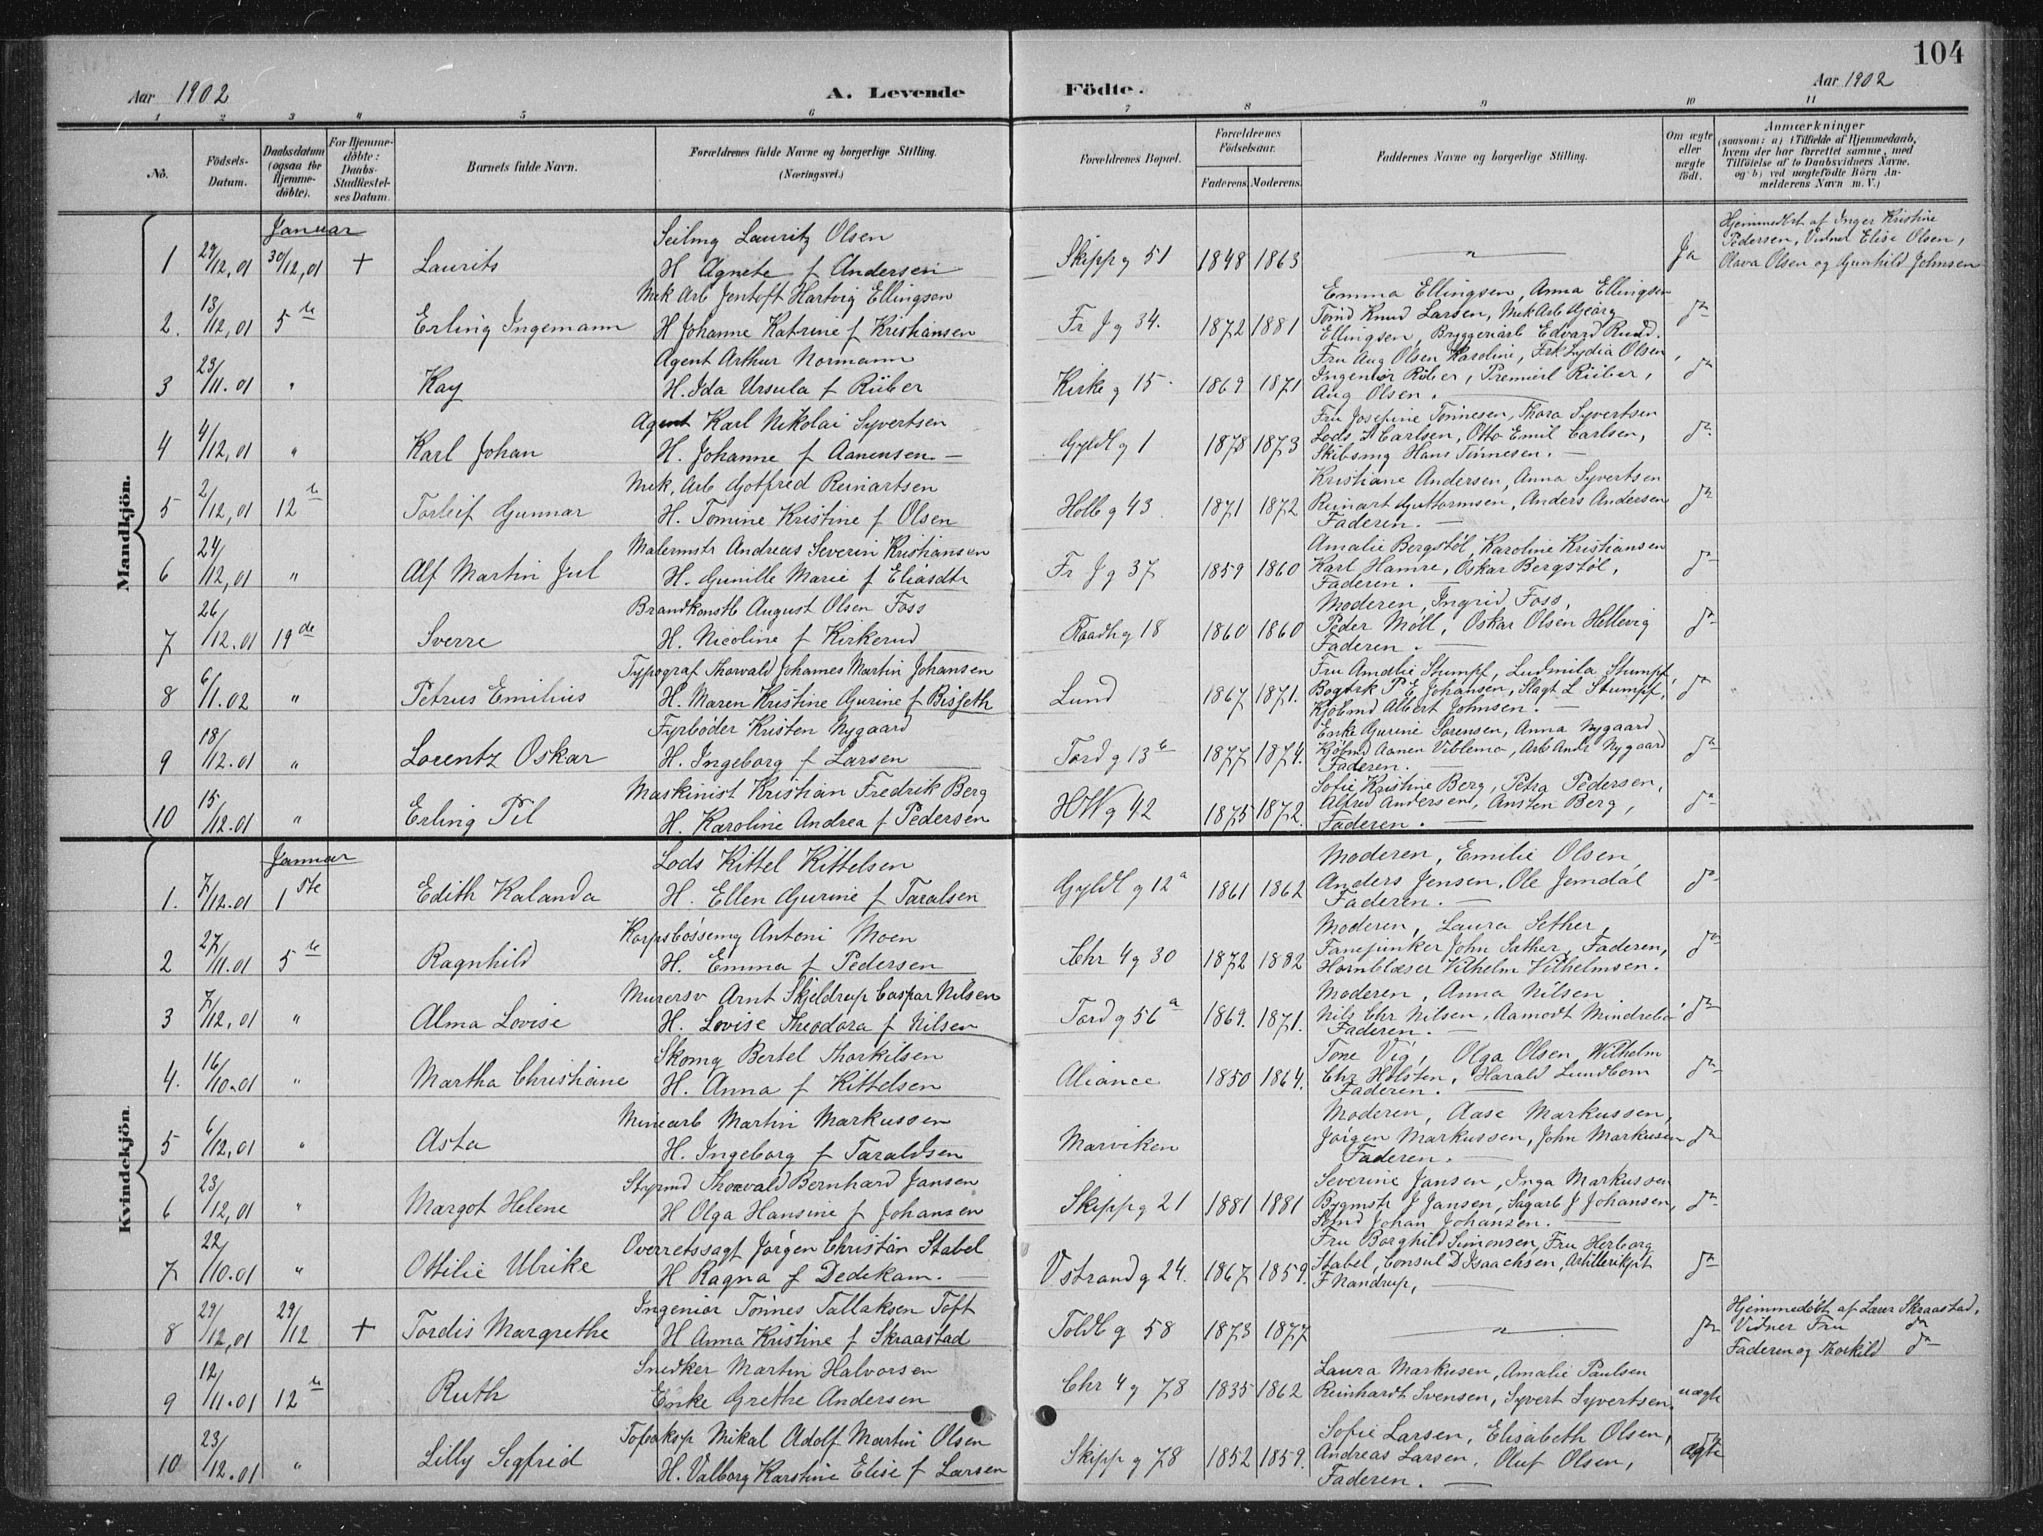 104
Aar 1902 A. Levende Födte. Aar 1902
1 2 3 4 5 6 7 8 9 10 11
No. Födsels-Datum. Daabsdatum (ogsaa for Hjemme-döbte). For Hjemme-döbte: Daabs-Stadfæstel-ses Datum. Barnets fulde Navn. Forældrenes fulde Navne og borgerlige Stilling. (Næringsvei.) Forældrenes Bopæl. Forældrenes Födselsaar. Faderens. Moderens. Faddernes Navne og borgerlige Stilling. Om ægte eller uægte födt. Anmærkninger (saasom: a) i Tilfælde af Hjemmedaab, hvem der har forrettet samme, med Tilföielse af to Daabsvidners Navne. og b) ved uægtefödte Börn An-melderens Navn m. V.)
Mandkjön.
Januar
1 29/12,01 30/12,01 + Laurits
Seilmg Lauritz Olsen
H Agnete f Andersen
Skippg 51 1848 1863 — " — Ja
Hjemmedøbt af Inger Kristine
Pedersen, Vidner Elise Olsen,
Olava Olsen og Gunhild Johnsen
2. 13/12,01 5te Erling Ingemann
Mek Arb Jentoft Hartvig Ellingsen
H Johanne Katrine f Kristiansen
Fr J g 34. 1872 1881
Emma Ellingsen, Anna Ellingsen
Tømd Knud Larsen, Mek Arb Georg
Ellingsen, Bryggeriarb Edvard Rudd.
do
3 23/11.01 " Kay
Agent Arthur Normann
H. Ida Ursula f Rüber
Kirkeg 15. 1869 1871
Fru Aug Olsen Karoline, Frk Lydia Olsen,
Ingeniør Rüber, Premierl Rüber,
Aug Olsen. —
do
4 4/12,01 " Karl Johan
Agent Karl Nikolai Syvertsen
H. Johanne f Aanensen —
Gyldl g 1 1878 1873
Fru Josefine Tønnesen, Thora Syvertsen
Lods A Carlsen, Otto Emil Carlsen,
Skibsmg Hans Tønnesen. —
do
5 2/12,01 12te Torleif Gunnar
Mek, Arb Gotfred Reinartsen
H. Tomine Kristine f Olsen
Holbg 43 1871 1872
Kristiane Andersen, Anna Syvertsen
Reinart Guttormsen, Anders Andersen
Faderen. —
do
6 24/12,01 " Alf Martin Jul
Malermstr Andreas Severin Kristiansen
H. Gunille Marie f Eliasdtr
Fr J g 37 1859 1860
Amalie Bergstøl, Karoline Kristiansen
Karl Hamre, Oskar Bergstøl,
Faderen. —
do
7 26/12.01 19de Sverre
Brandkonstb August Olsen Foss
H. Nicoline f Kirkerud
Raadhg 18 1860 1860
Moderen, Ingrid Foss,
Peder Moll, Oskar Olsen Hellevig
Faderen. —
do
8 6/1.02 " Petrus Emilius
Typograf Thorvald Johannes Martin Johansen
H. Maren Kristine Gurine f Bisseth
Lund 1867 1871.
Fru Amalie Stumpf, Ludmila Stumpf,
Bogtrk P E Johansen, Slagt L Stumpf,
Kjøbmd Albert Johnsen. —
do
9 18/12.01 " Lorentz Oskar
Fyrbøder Kristen Nygaard
H. Ingeborg f Larsen
Tordg 13b 1877 1874.
Enke Gurine Sørensen, Anna Nygaard
Kjøbmd Aanen Viblemo, Arb Andr Nygaard
Faderen. —
do
10 15/12.01 " Erling Til
Maskinist Kristian Fredrik Berg
H. Karoline Andrea f Pedersen
H W g 42 1875 1872.
Sofie Kristine Berg, Petra Pedersen,
Alfred Andersen, Ansten Berg,
Faderen. —
do
Kvindekjön.
Januar
1. 7/12.01 1ste Edith Kalanda
Lods Kittel Kittelsen
H. Ellen Gurine f Taralsen
Gyldl g 12a 1861 1862
Moderen, Emilie Olsen,
Anders Jensen, Ole Jemdal
Faderen. —
do
2 27/11.01 5te Ragnhild
Korpsbøssemg Antoni Moen
H. Emma f Pedersen
Chr 4 g 30 1872 1882
Moderen, Laura Sether,
Fanejunker John Sather, Faderen,
Hornblæser Vilhelm Vilhelmsen.
do
3 7/12,01 " Alma Lovise
Murersv Arnt Skjeldrup Caspar Nilsen
H. Lovise Theodora f Nilsen
Tordg 56a 1869. 1871.
Moderen, Anna Nilsen
Nils Chr Nilsen, Aamodt Mindrebø
Faderen. —
do
4. 16/10.01 " Martha Christiane
Skomg Bertel Thorkilsen
H. Anna f Kittelsen
Aliance 1850 1864.
Tone Vig, Olga Olsen, Wilhelm
Chr Holsten, Harald Lundbom
Faderen. —
do
5 6/12,01 " Asta
Minearb Martin Markussen
H. Ingeborg f Taraldsen
Marviken
Moderen, Aase Markussen,
Jørgen Markussen, John Markusen
Faderen. —
do
6 23/12,01 " Margot Helene
Styrmd Thorvald Bernhard Jansen
H Olga Hansine f Johansen
Skippg 21 1881 1881
Severine Jansen, Inga Markussen
Bygmstr J Jansen, Sagarb J Johansen,
Sømd Johan Johansen. —
do
7 22/10.01 " Ottilie Ulrike
Overretssagf Jørgen Christian Stabel
H Ragna f Dedekam. —
V strandg 24. 1867 1859.
Fru Borghild Simonsen, Fru Herborg
Stabel, Consul D Isaachsen, Artillerikpt
F Nandrup, —
do
8 29/12,01 29/12 + Tordis Margrethe
Ingeniør Tønnes Tallaksen Toft
H Anna Kristine f Skraastad
Toldb g 58 1873 1877 — " — do
Hjemmedøbt af Laur Skraastad,
Vidner Fru do
Faderen og Thorkild do
9 12/11.01 12te Ruth
Snedker Martin Halvorsen
Enke Grethe Andersen
Chr 4 g 78 1835 1862
Laura Markusen, Amalie Paulsen
Reinhardt Svensen, Syvert Syvertsen,
uægte
10 23/12.01 " Lilly Sigfrid
Tobaksp Mikal Adolf Martin Olsen
H. Valborg Karstine Elise f Larsen
Skippg 78 1852 1859.
Sofie Larsen, Elisabeth Olsen,
Andreas Larsen, Oluf Olsen,
Faderen. —
ægte